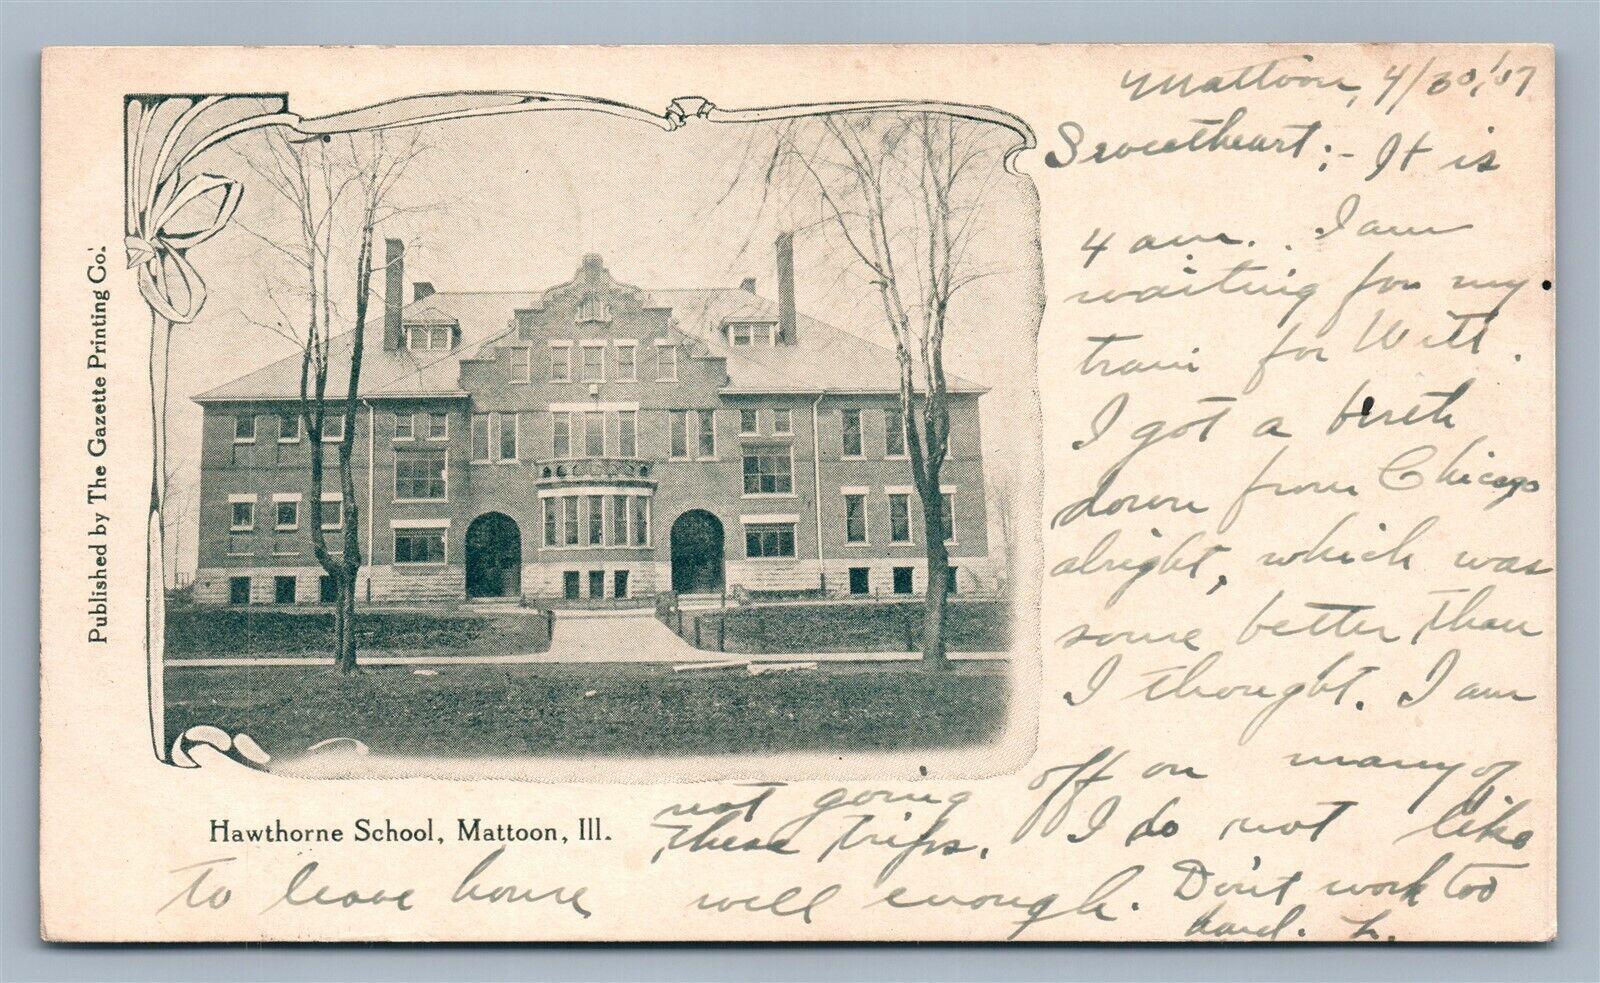 Mattoon, 4/30,'07
Sweetheart:- It is
4 am.. I am
waiting for my
train for Witt.
I got a birth
down from Chicago
alright, which was
some better than
I thought. I am
not going off on many of
these trips. I do not like
to leave home well enough. Don't work too
hard. L.
Published by The Gazette Printing Co.
Hawthorne School, Mattoon, Ill.